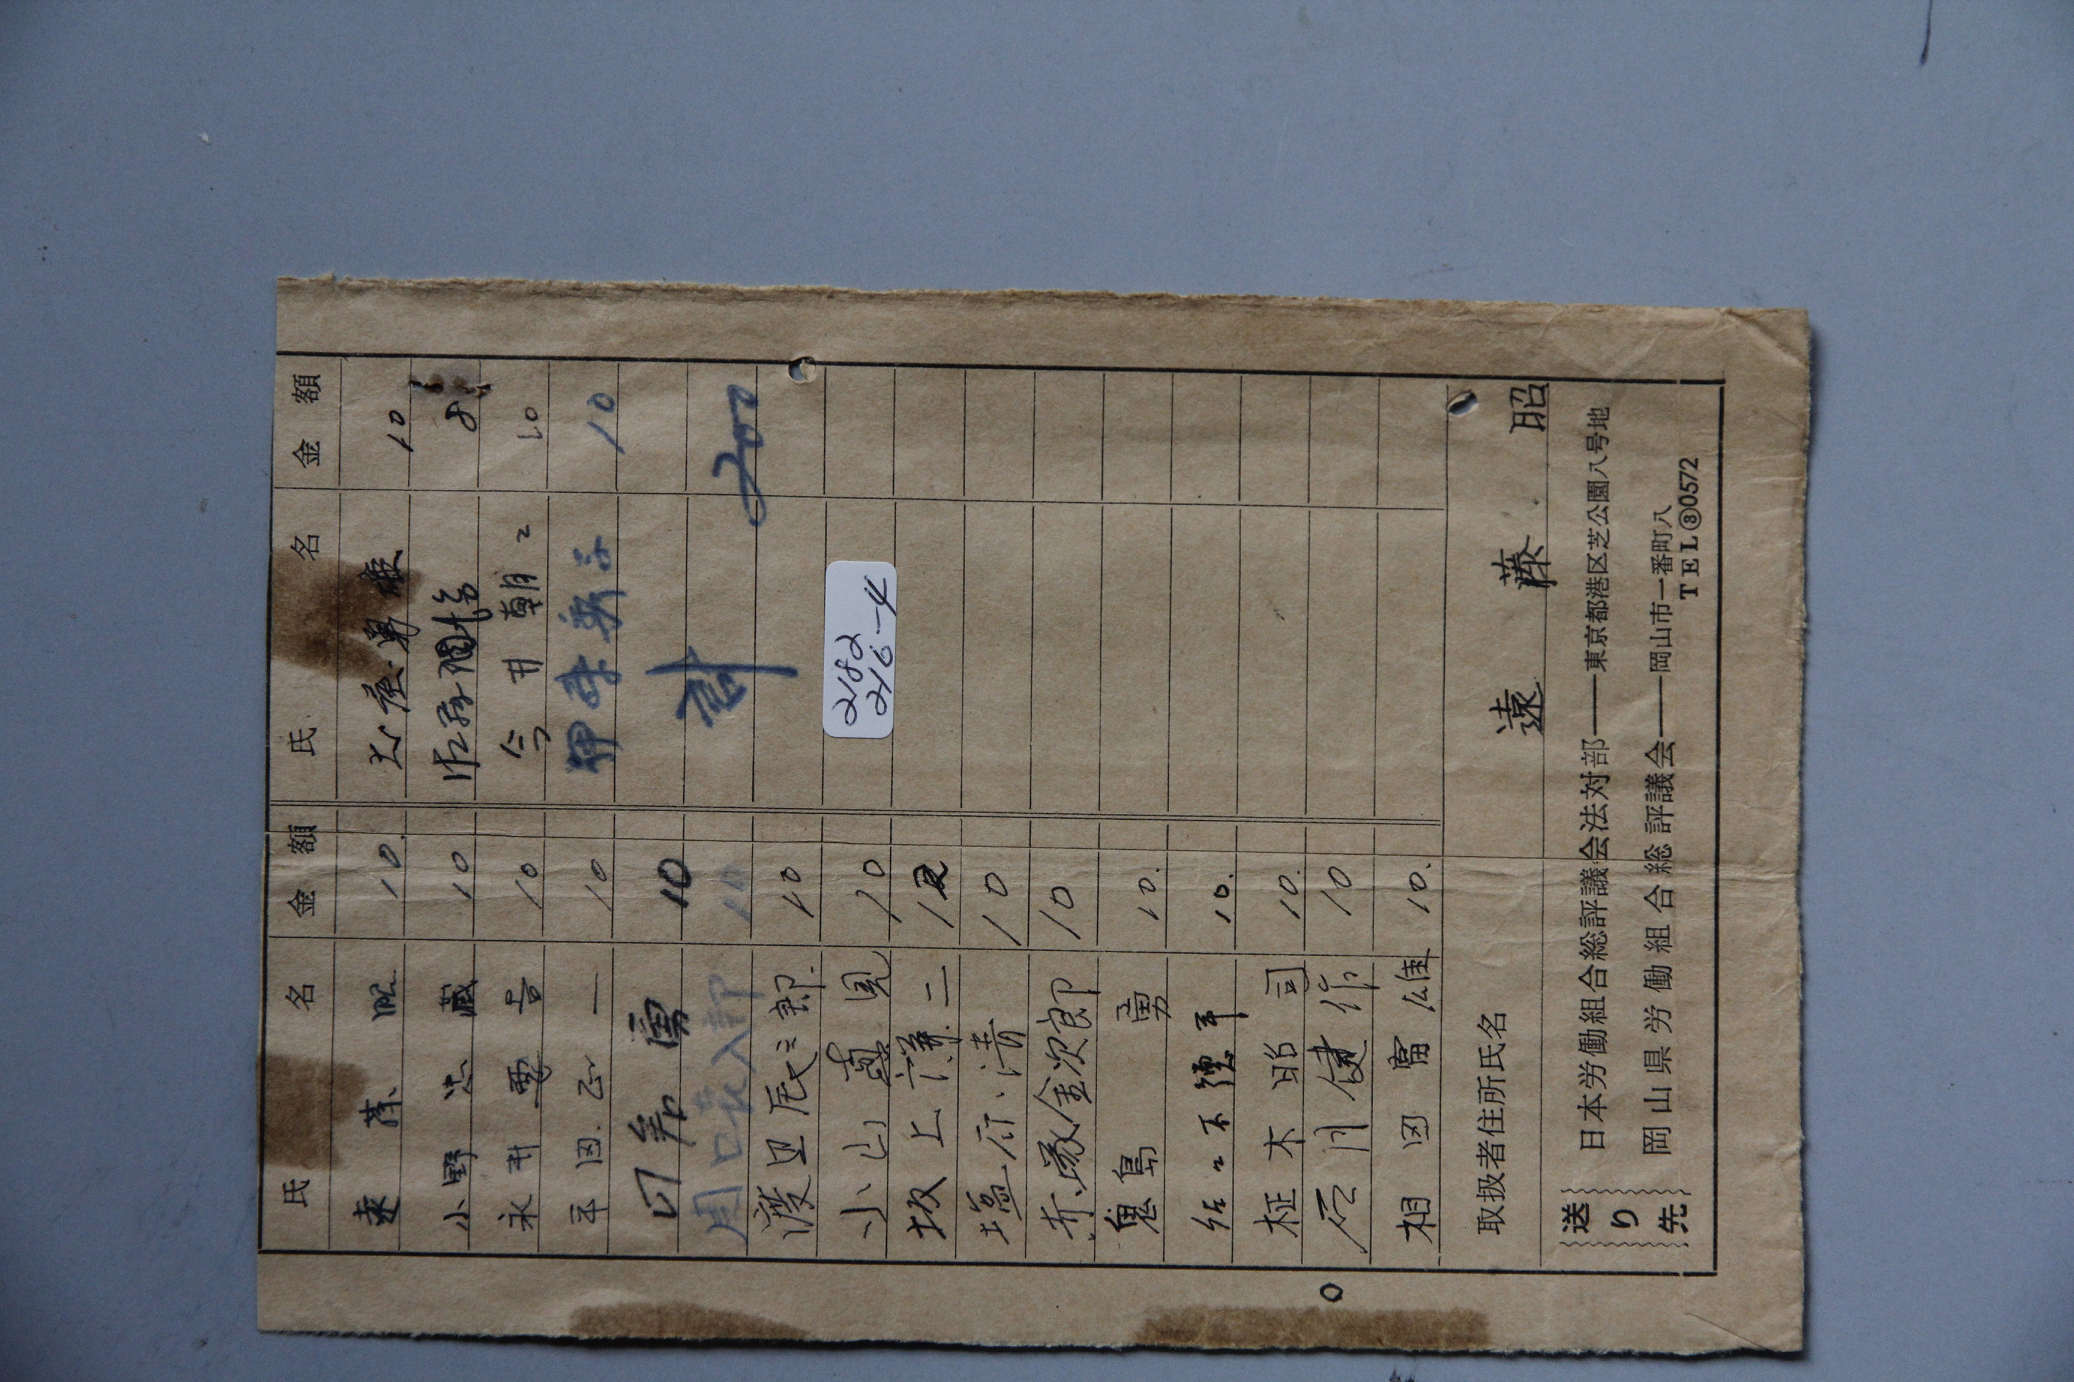 氏 名 金 額 氏 名 金 額
遠 藤 昭 10.
小 野 忠 藏 10
永 井 要 吉 10
平 田 正 一 10
勇 10
周 口 10
渡 辺 辰 三 郎 10
小 山 真 見 10
坂 上 洋 二 10
塩 府 清 10
赤塚金次郎 10
鬼 島 勇 10.
佐々木 徳 平 10.
柾 木 昭 司 10.
石 川 健 作 10
相 田 富 雄 10.
10
8
今 井 朝 10
10
計 200
2182
216-4
取扱者住所氏名 遠 藤 昭
送り先
日本労働組合総評議会法対部――東京都港区芝公園八号地
岡山県労働組合総評議会――岡山市一番町八
TEL⑧0572